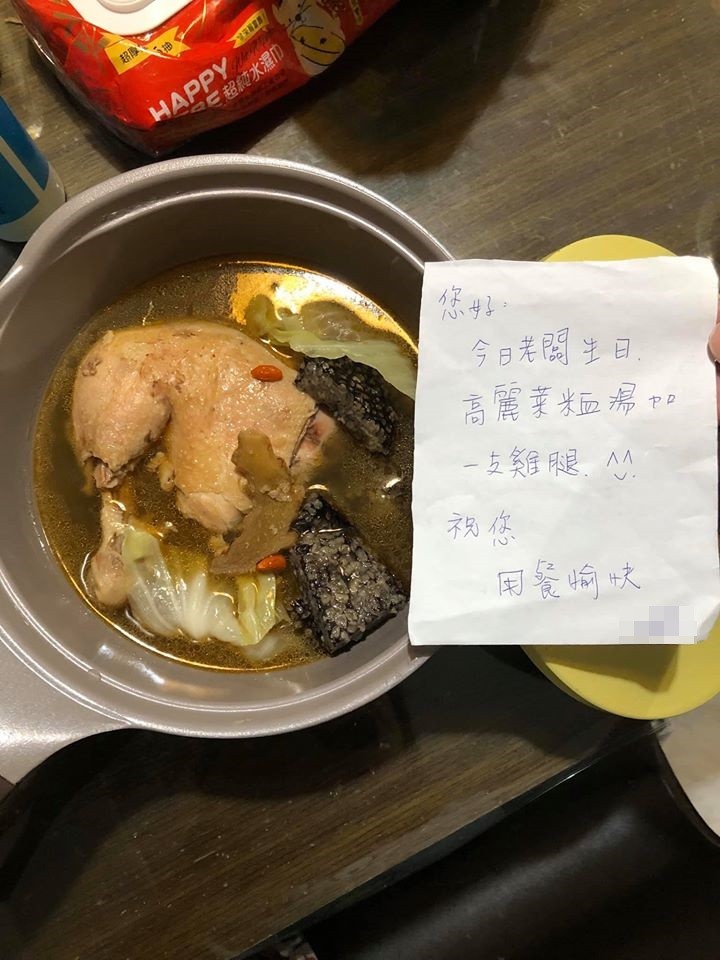 HAPPY
超純水濕巾
您好:
今日老闆生日.
高麗菜米血湯加
一支雞腿. ^^
祝您
用餐愉快